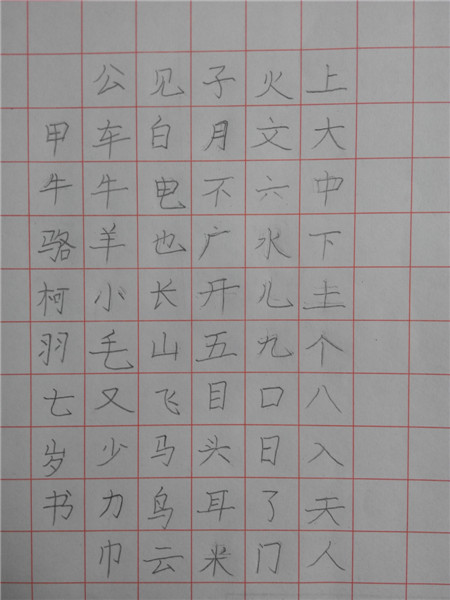 上大中下土个八入天人
火文六水儿九口日了门
子月不广开五目头耳米
见白电也长山飞马鸟云
公车牛羊小毛又少力巾
甲牛骆柯羽七岁书